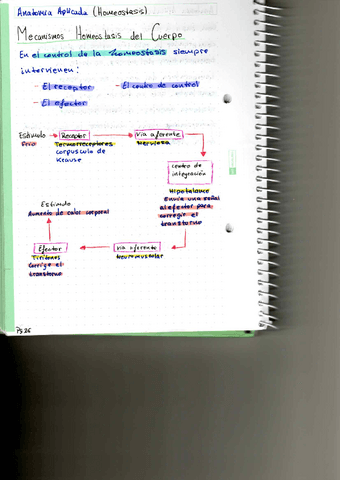 Anatomía Aplicada (Homeostasis)
Mecanismos Homeostasis del Cuerpo
En el control de la homeostasis siempre
intervienen:
- El receptor - El centro de control
- El efector
Estímulo Receptor vía aferente
Frío Termorreceptores Nerviosa
corpusculo de
Krause
centro de
integración
Hipotálamo
Envía una señal
al efector para
corregir el
transtorno
Estímulo
Aumento de calor corporal
Efector vía aferente
Tiritones Neuromuscular
Corrige el
transtorno
Pg.26